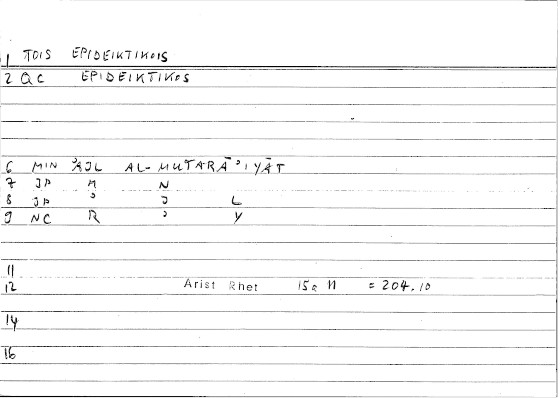 1 TOIS EPIDEIKTIKOIS
2 QC EPIDEIKTIKOS
6 MIN ʾAJL AL-MUTARĀʾIYĀT
7 JP M N
8 JP ʾ J L
9 NC R ʾ Y
11
12 Arist Rhet 15a 11 = 204.10
14
16